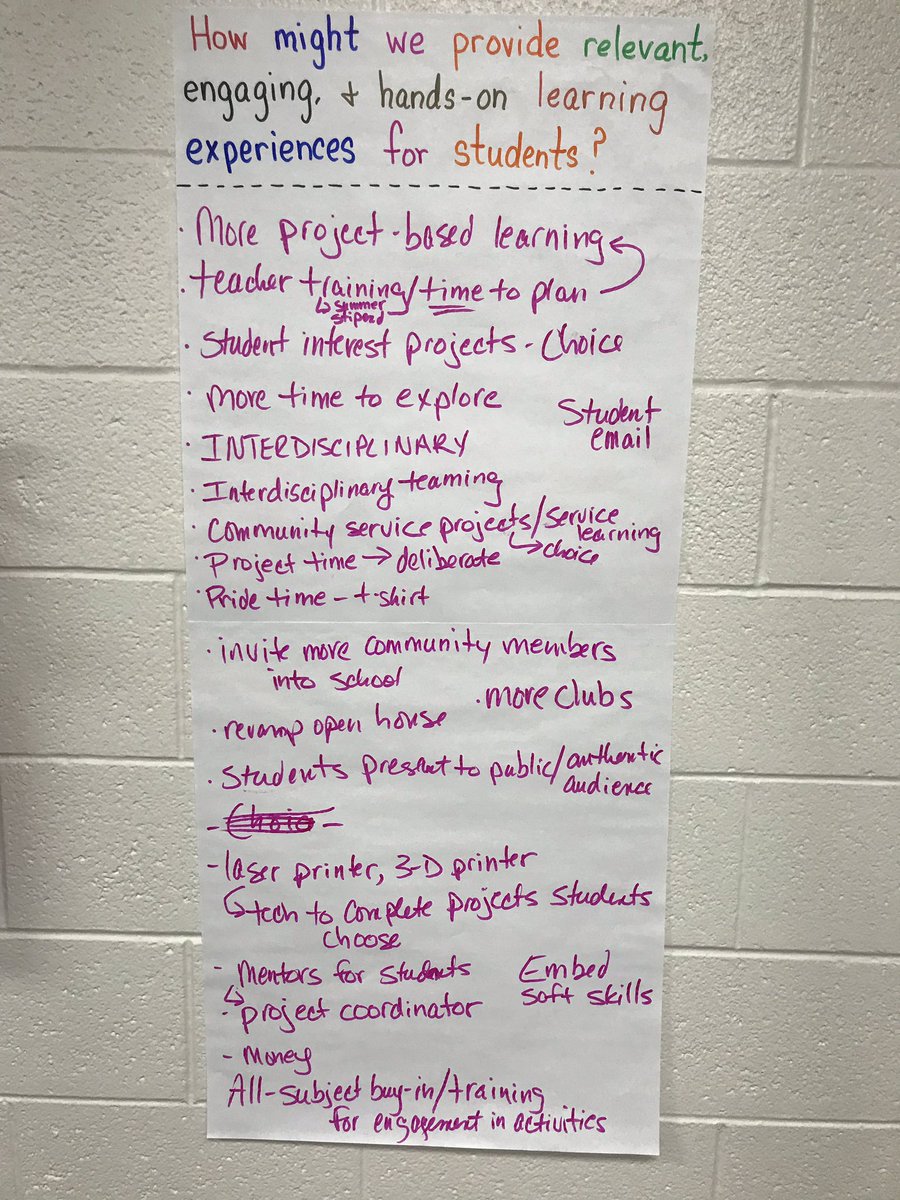 How might we provide relevant,
engaging, + hands-on learning
experiences for students?
· More project-based learning
· teacher training/time to plan
↳ summer
stipend
· Student interest projects - Choice
· more time to explore
Student
email
· INTERDISCIPLINARY
· Interdisciplinary teaming
· Community service projects/service
learning
↳ choice
· Project time → deliberate
· Pride time - t-shirt
· invite more community members
into school
· more clubs
· revamp open house
· Students present to public/authentic
audience
- laser printer, 3-D printer
↳ tech to complete projects students
choose
- Mentors for students
↳ project coordinator
Embed
soft skills
- Money
All-subject buy-in/training
for engagement in activities